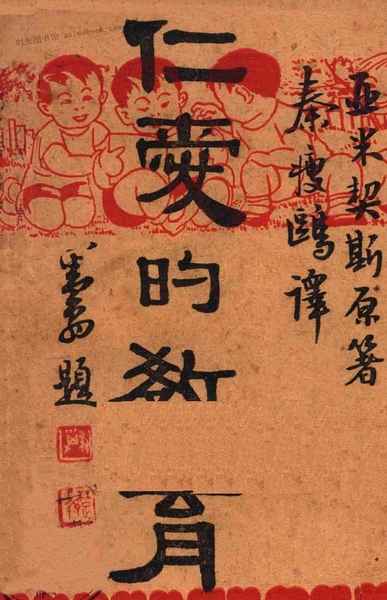 亞米契斯原著
秦瘦鷗譯
仁愛的教育
題